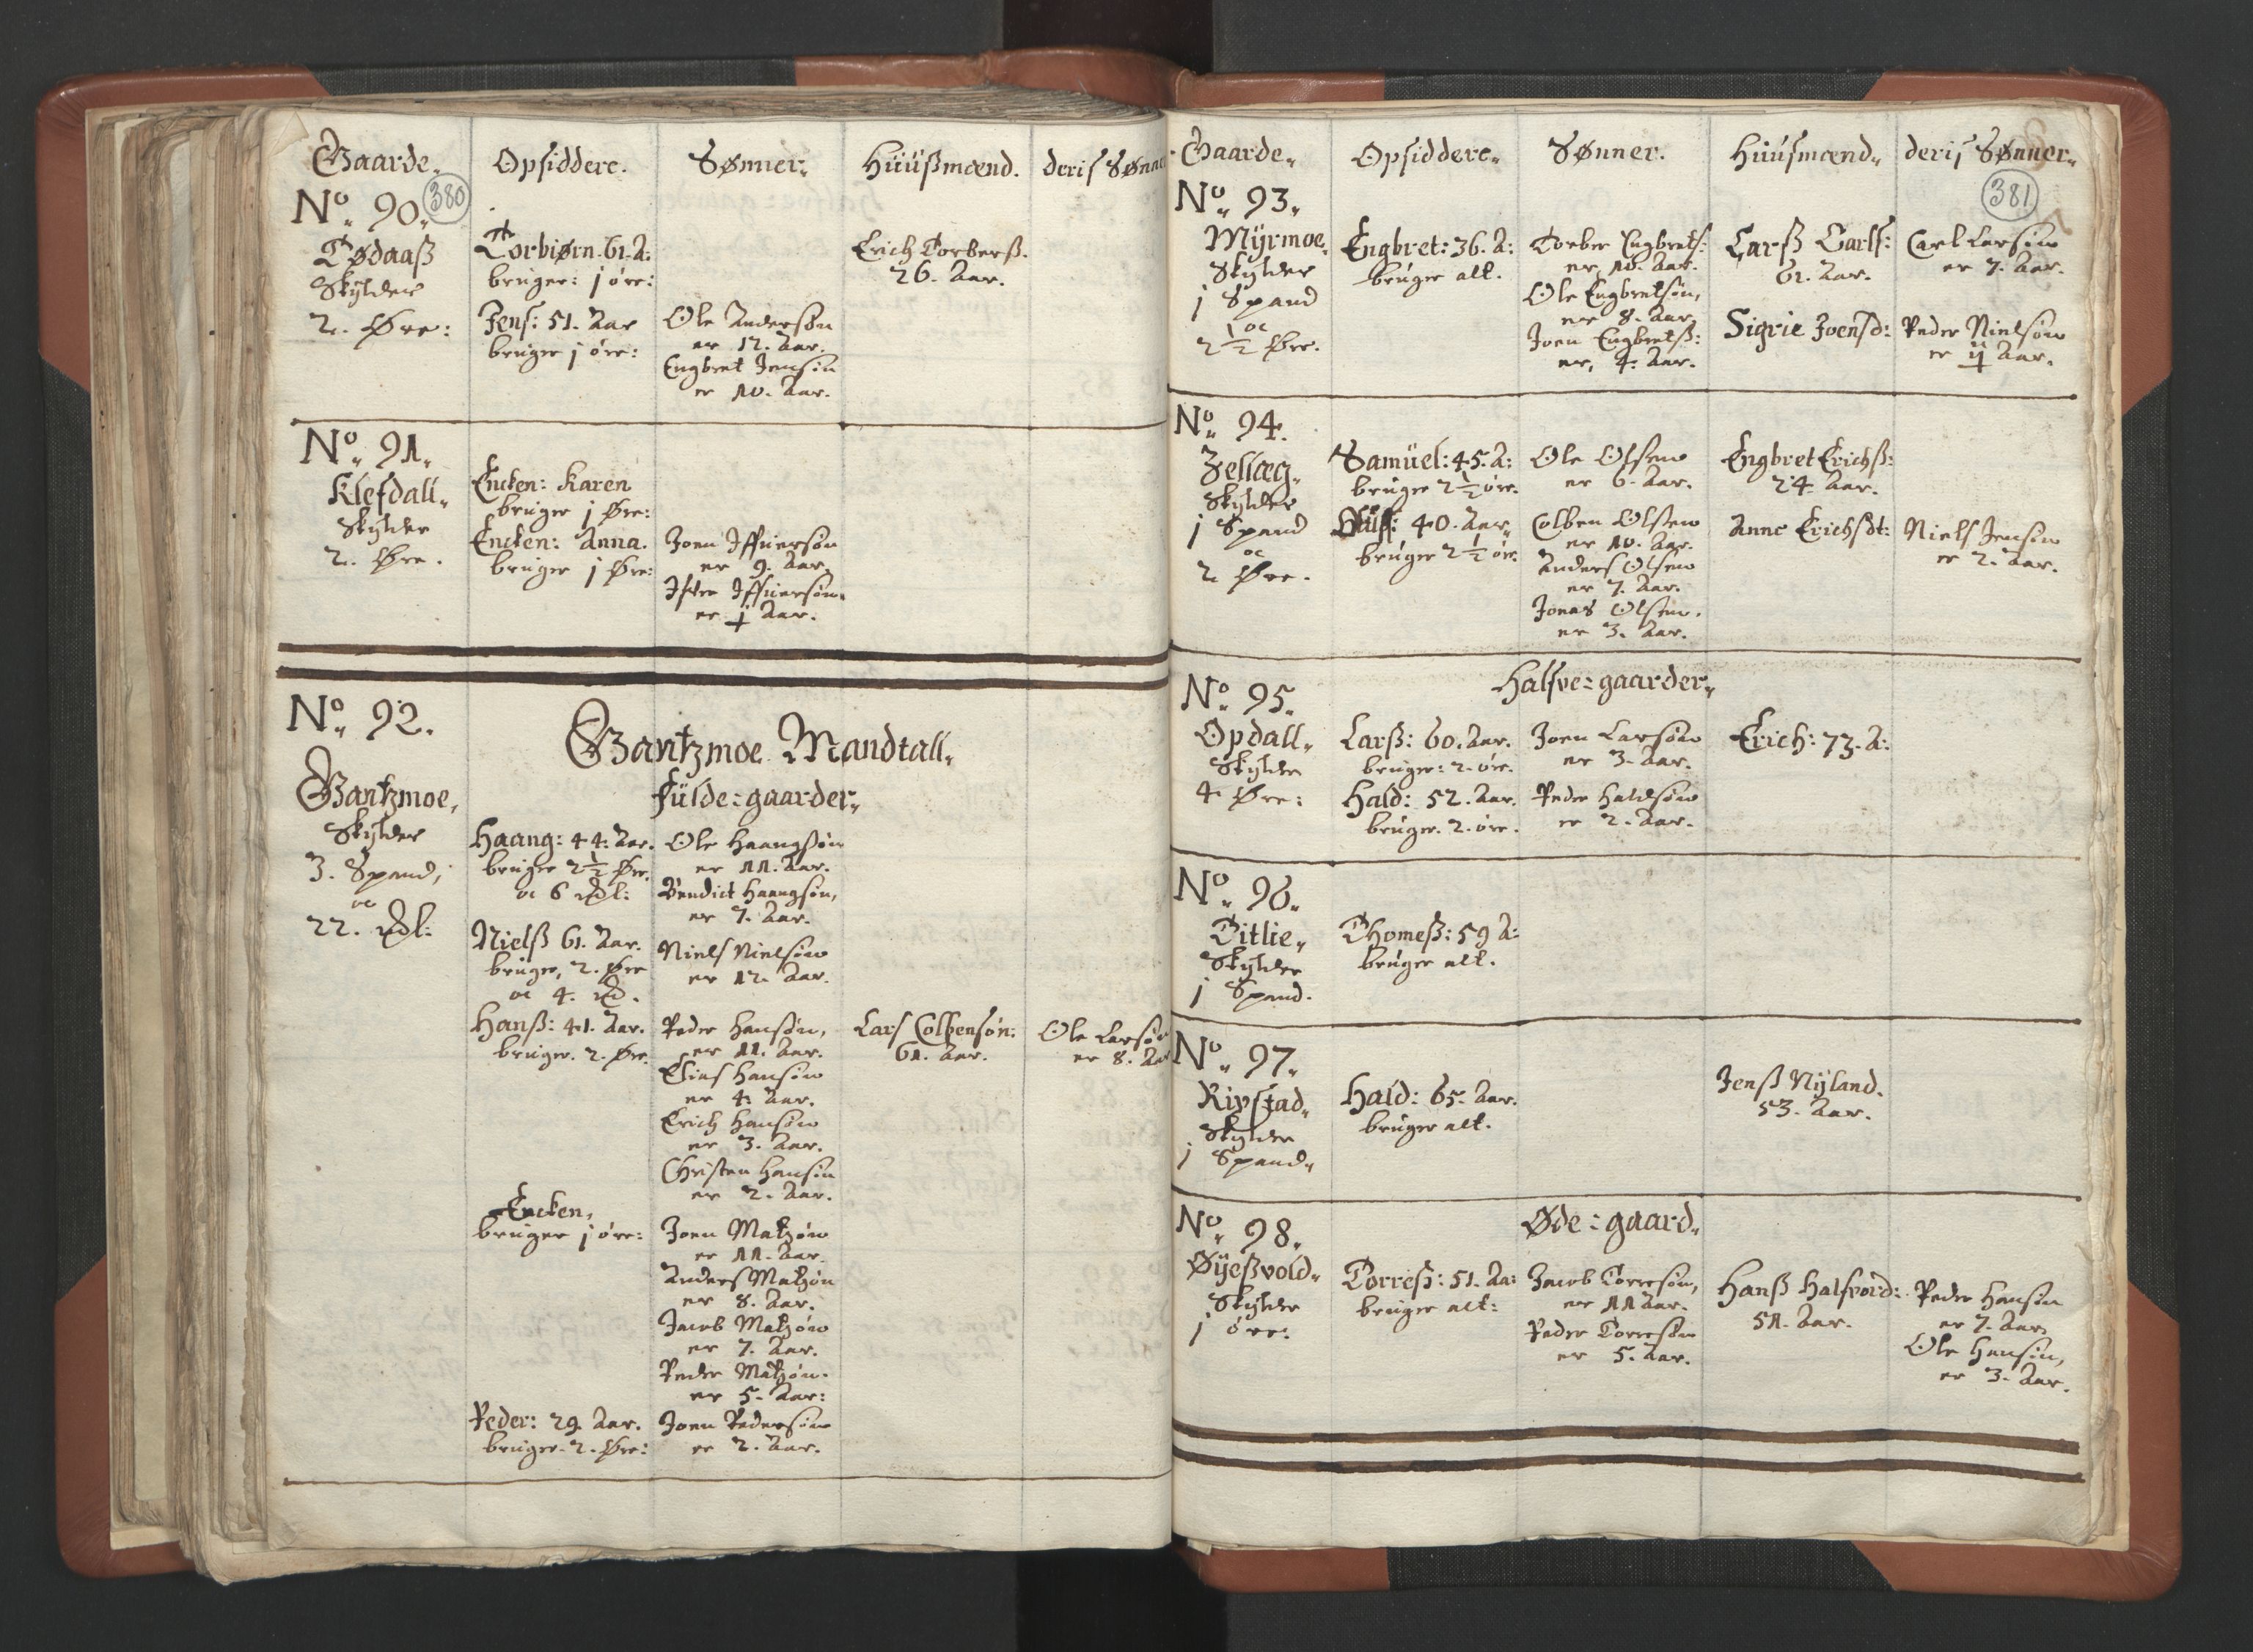 Gaarde. Opsiddere. Sønner. Hüüßmænd. deris Sønner
380
No. 90.
Tødaaß
Skylder
2. Øre:
Torbiørn. 61. A:
bruger: j øre:
Jens: 51. Aar
bruger j øre:
Ole Andersøn
er 12. Aar.
Engbret Jensøn
er 10. Aar.
Erich Torberß.
26. Aar.
No. 91.
Klefdall.
Skylder
2. Øre.
Encken: Karen
bruger j Øre:
Encken: Anna.
bruger j Øre:
Joen Iffuersøn
er 9. Aar.
Ifver Iffuersøn.
er j Aar.
No. 92.
Gantzmoe Mandtall.
Fülde=gaarder.
Gantzmoe,
Skylder
3. Spand,
oc
22. 
Haang: 44. Aar.
bruger 2½ Øre.
oc 6
Nielß 61. Aar.
bruger, 2. Øre
oc 4.
Hanß: 41. Aar.
bruger. 2. Øre.
Encken,
bruger j øre:
Peder: 29. Aar.
bruger. 2. Øre:
Ole Haangsøn
er 11. Aar.
Bendict Haangsøn,
er 7. Aar.
Niels Nielsøn
er 12. Aar.
Peder Hansøn,
er 11. Aar.
Elias Hansøn
er 4. Aar.
Erich Hansøn
er 3. Aar.
Christen Hansøn
er 2. Aar.
Joen Matzøn
er 11. Aar.
Anders Matzøn
er 8. Aar.
Jacob Matzøn
er 7. Aar.
Peder Matzøn.
er 5. Aar:
Joen Pedersøn
er 2. Aar.
Lars Colbensøn:
61. Aar.
Ole Larsøn
er 8. Aar
Gaarde. Opsiddere. Sønner. Hüüsmænd. deris Sønner.
381
No. 93.
Myrmoe.
Skylder
j Spand
oc
2½ Øre.
Engbret: 36. A:
bruger alt.
Torber Engbrets:
er 10. Aar.
Ole Engbretsøn,
er 8. Aar.
Joen Engbretß:
er, 4. Aar.
Larß Carls:
61. Aar.
Sigrie Joensd:
Carl Larsøn
er 7. Aar.
Peder Nielsøn
er ij Aar.
No. 94.
Jellæg.
Skylder
j Spand
oc
2 Øre.
Samüel: 45. A:
bruger 2½ øre.
40. Aar.
bruger 2½ øre.
Ole Olsen
er 6. Aar.
Colben Olsen
er 10. Aar.
Anders Olsen
er 7. Aar.
Jonas Olsen.
er 3. Aar.
Engbret Erichß:
24. Aar.
Anne Erichsdt:
Niels Jensøn
er 2. Aar.
Halfve=gaarder.
No. 95.
Opdall.
Skylder
4 Øre:
Larß: 60. Aar.
bruger: 2. øre.
Hald: 52. Aar.
bruger. 2. øre.
Joen Larsøn
er 3. Aar.
Peder Haldsøn
er 2. Aar.
Erich: 73. A:
No. 96.
Titlie.
Skylder
j Spand.
Thomeß: 59 A:
bruger alt.
No. 97.
Ripstad.
Skylder
j Spand.
Hald: 65. Aar.
bruger alt.
Jenß Nyland.
53. Aar.
Øde=gaard.
No. 98.
Øyeßvold.
Skylder
j øre.
Torreß: 51. Aa:
bruger alt:
Jacob Torresøn,
er 11 Aar.
Peder Torresøn
er 5. Aar.
Hanß Halfvord:
51. Aar.
Peder Hansøn
er 7. Aar,
Ole Hansøn,
er 3. Aar.